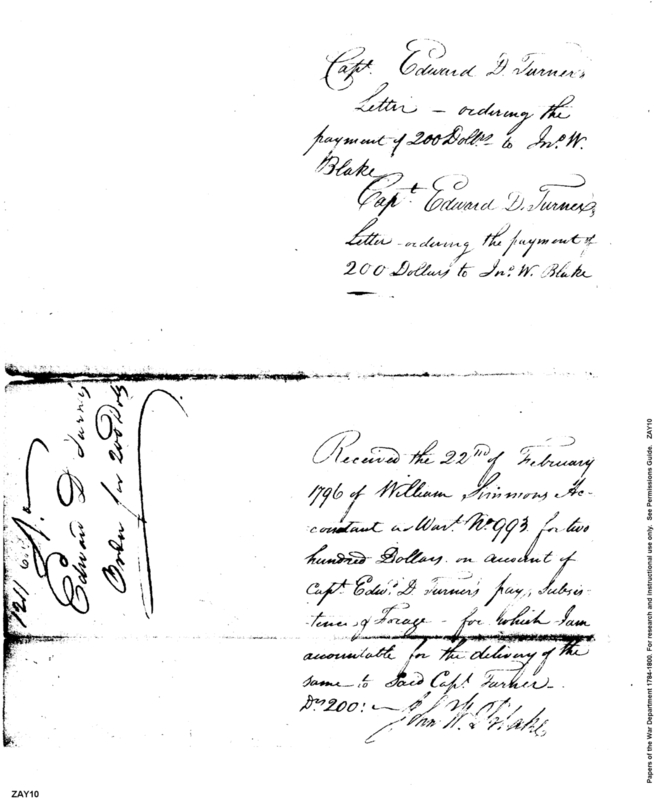 Capt. Edward D. Turners
Letter – ordering the
payment of 200 Dolls to Jno. W.
Blake
Capt. Edward D. Turners
Letter – ordering the payment of
200 Dollars to Jno. W. Blake
1211
Edward D Turner
Order for 200 Dols
Received the 22nd of February
1796 of William Simmons Ac-
countant a Wart. No 993 for two
hundred Dollars on account of
Capt. Edwd. D. Turner's pay, Subsis-
tence, & Forage – for which I am
accountable for the delivery of the
same to Said Capt. Turner –
Ds 200: – John W. Blake
ZAY10
Papers of the War Department 1784-1800. For research and instructional use only. See Permissions Guide. ZAY10